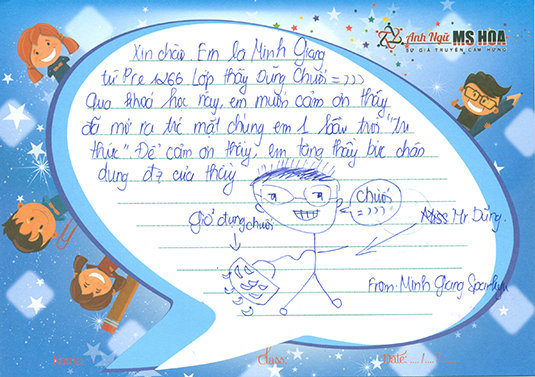 Anh Ngữ MS HOA
SỨ GIẢ TRUYỀN CẢM HỨNG
Xin chào. Em là Minh Giang
từ Pre 1266 Lớp thầy Dũng Chuối =)))
Qua khoá học này, em muốn cảm ơn thầy
đã mở ra trc mặt chúng em 1 bầu trời "Tri
thức". Để cảm ơn thầy, em tặng thầy bức chân
dung của thầy
chuối
=))))
giỏ đựng chuối
Mr Dũng.
From: Minh Giang
Name:
Class:
Date: .../.../...